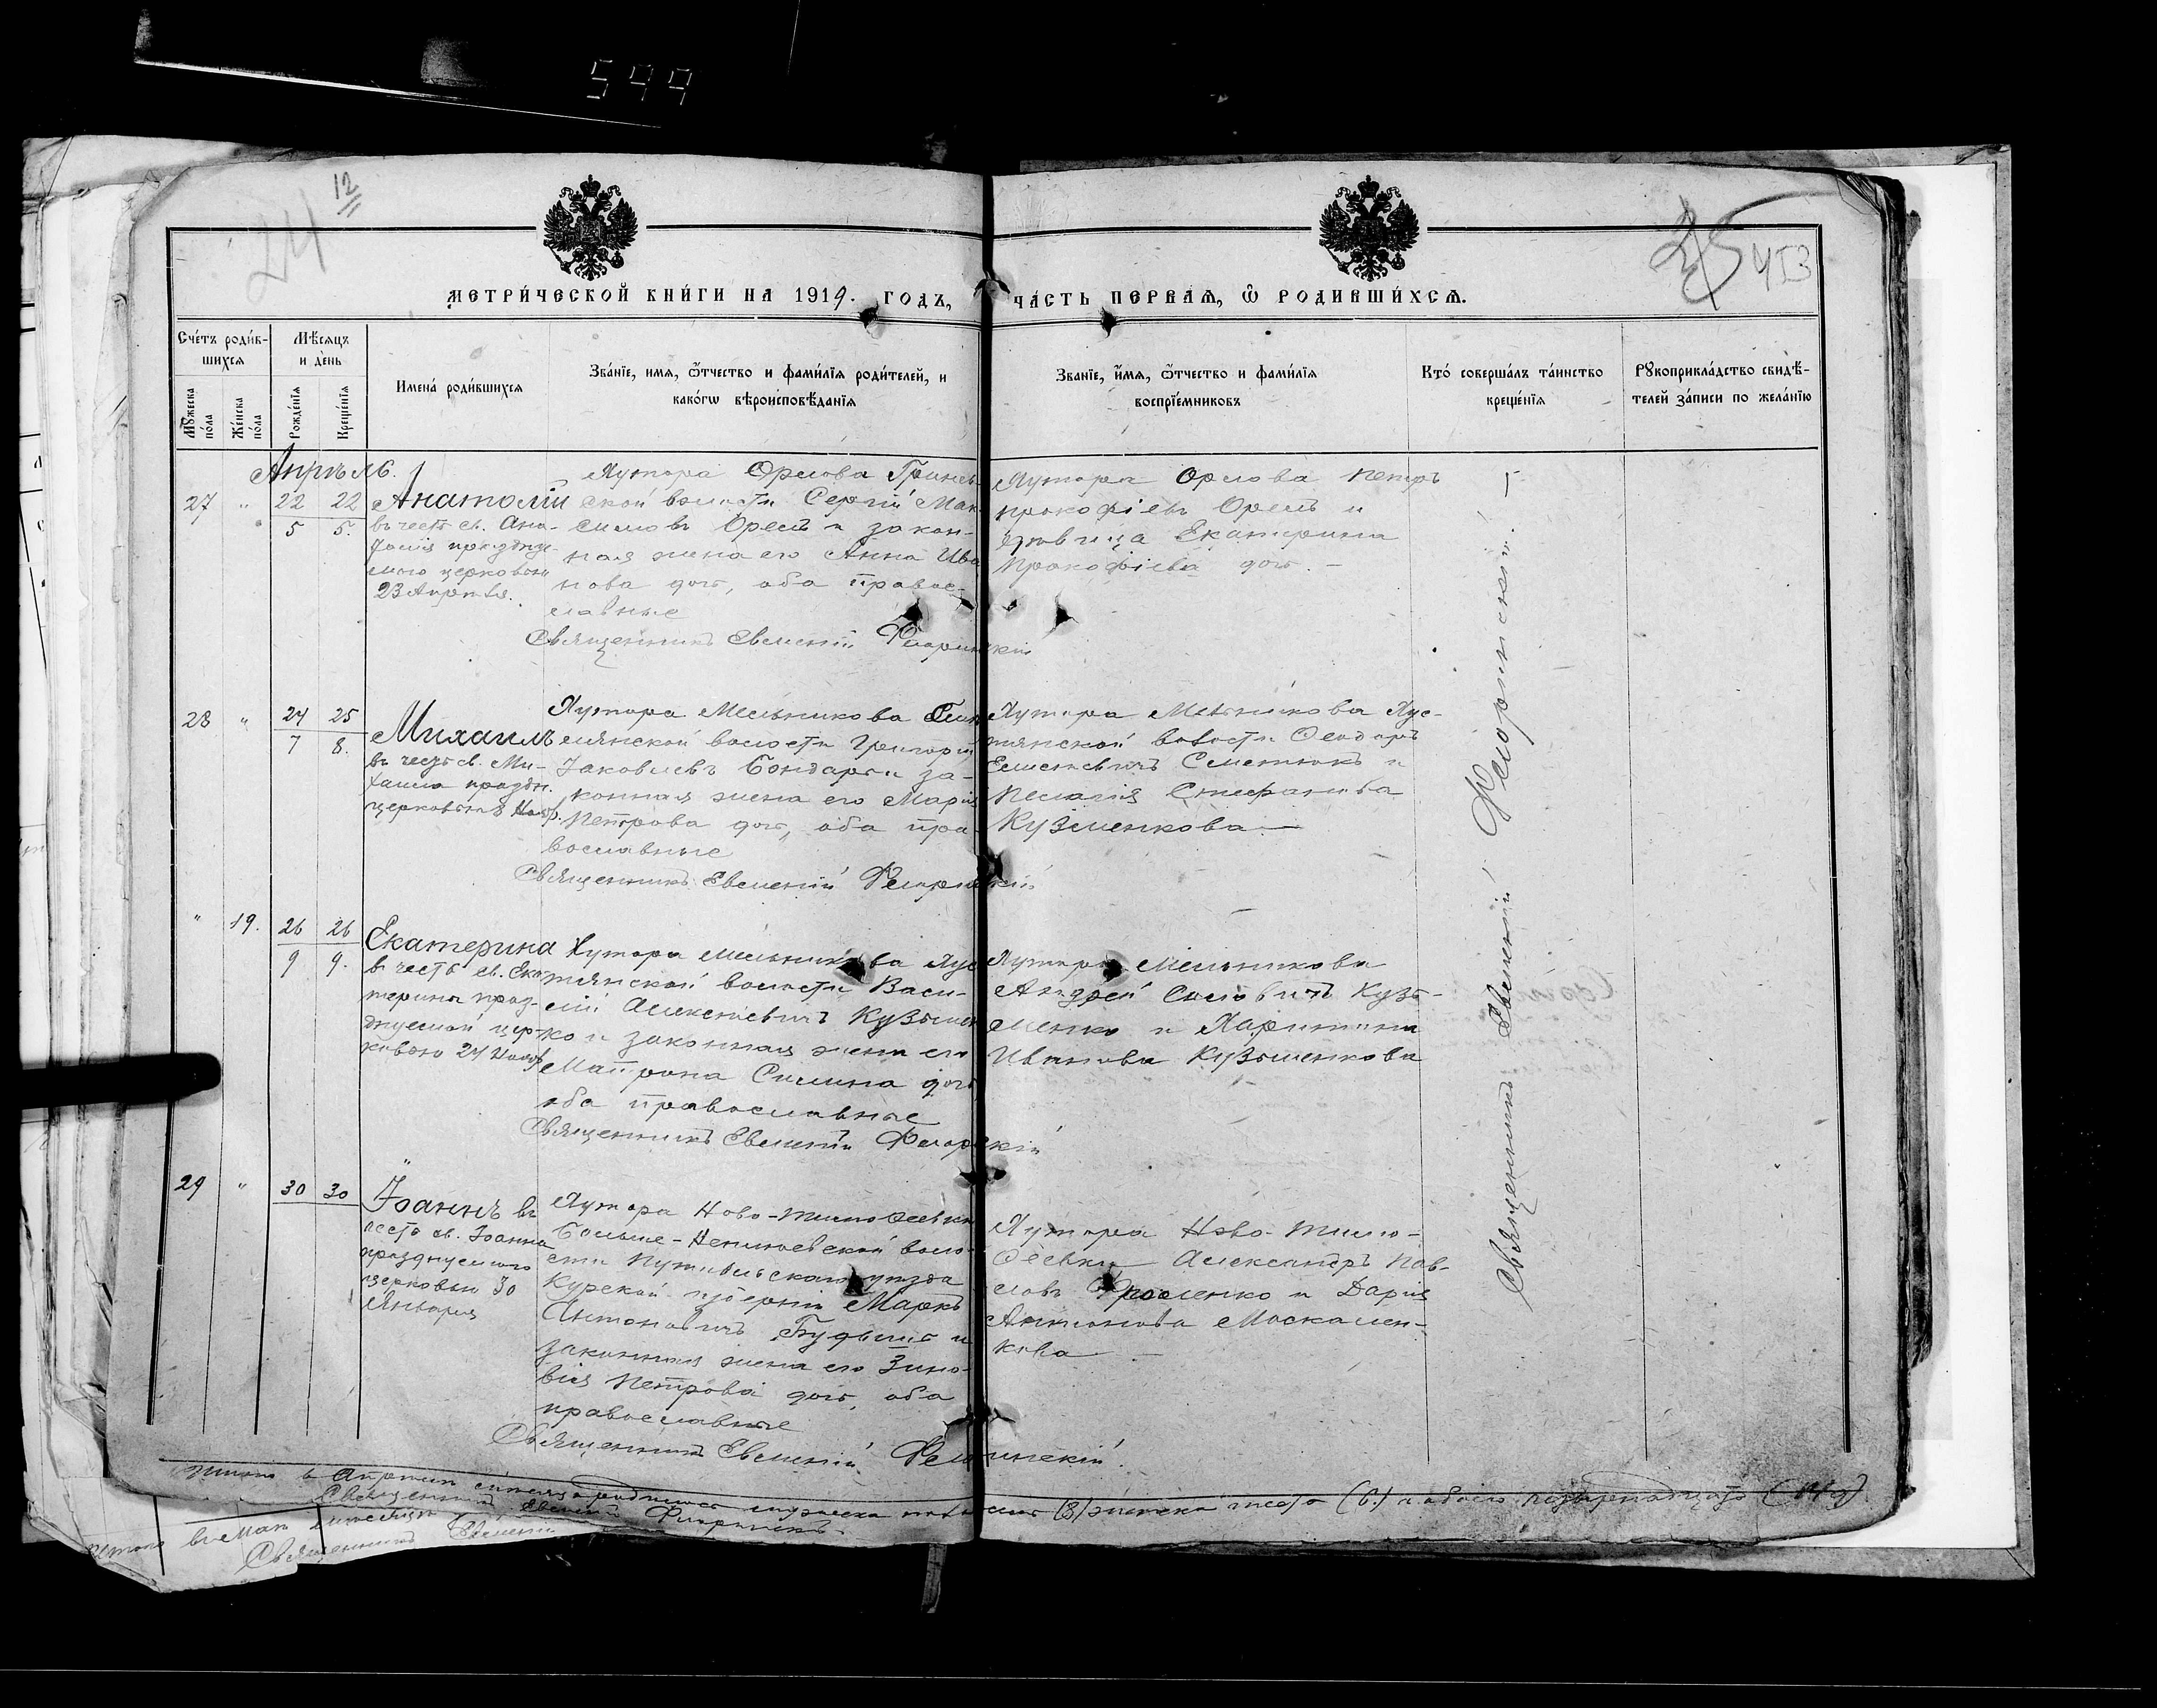 599
12
24
25
413
МЕТРИ́ЧЕСКОЙ КНИ́ГИ НА 1919. ГОДЪ,
ЧА́СТЬ ПЕРВАѦ, Ѿ РОДИВШИ́ХСѦ.
Сче́тъ роди́в-
шихсѧ
Мꙋ́жеска по́ла
Же́нска по́ла
Мѣ́сѧцъ
и де́нь
Рожде́нїѧ
Креще́нїѧ
Имена̀ роди́вшихсѧ
Зва́нїе, имѧ, ѿтчество и фами́лїѧ роди́телей, и
како́гѡ вѣроисповѣ́данїѧ
Зва́нїе, и́мѧ, ѿтчество и фами́лїѧ
воспрїе́мниковъ
Кто́ соверша́лъ та́инство
креще́нїѧ
Рꙋкоприкла́дство свидѣ́-
телей за́писи по жела́нїю
Апрѣль.
27 " 22 22
5 5.
Анатолій
въ честь св. Ана-
толія праздну-
емаго церковью
23 Апрѣля.
Хутора Орлова
ской волости Сергій Мак-
симовъ Орелъ и закон-
ная жена его Анна Ива
нова дочь, оба правос-
лавные
Священникъ Евменій
Хутора Орлова Петръ
Прокофіевъ Орелъ и
дѣвица Екатерина
Прокофіева дочь. –
28 " 24 25
7 8.
Михаилъ
въ честь св. Ми-
хаила праздн.
церковью 8 Нояб.
Хутора Мельникова
волости Григорій
Іаковлевъ Бондарь и за-
конная жена его Марія
Петрова дочь, оба пра-
вославные
Священникъ Евменій
Хутора Мельникова Хус-
тянской волости Ѳеодоръ
Семенюкъ и
Пелагія Стефанова
Кузьменкова —
" 19. 26 26
9 9.
Екатерина
въ честь св. Ека
терины праз-
днуемой цер-
ковью 24 Нояб
Хутора Мельникова Хус
тянской волости Васи-
лій Алексѣевичъ Кузьмен
ко и законная жена его
Матрона Силина дочь
оба православные
Священникъ Евменій
Хутора Мельникова
Андрей Силовичъ Кузь-
менко и Харитина
Иванова Кузьменкова
29 " 30 30
Іоаннъ въ
честь св. Іоанна
празднуемаго
церковью 30
Января
Хутора Ново-Тимоѳеевки
воло-
сти Путивльскаго уѣзда
Курской губерніи Маркъ
Антоновичъ и
законная жена его Зино-
вія Петрова дочь, оба
православные
Священникъ Евменій
Хутора Ново-Тимо-
ѳеевки Александръ Пав-
ловъ Фроленко и Дарія
Антонова Москален-
кова —
Священникъ Евменій
Итого въ Апрѣлѣ мѣсяцѣ родилось мужеска пола восемь (8) женска шесть (6.) а обоего четырнадцать (14)
Священникъ Евменій
Итого въ Маѣ мѣсяцѣ
Священникъ Евменій